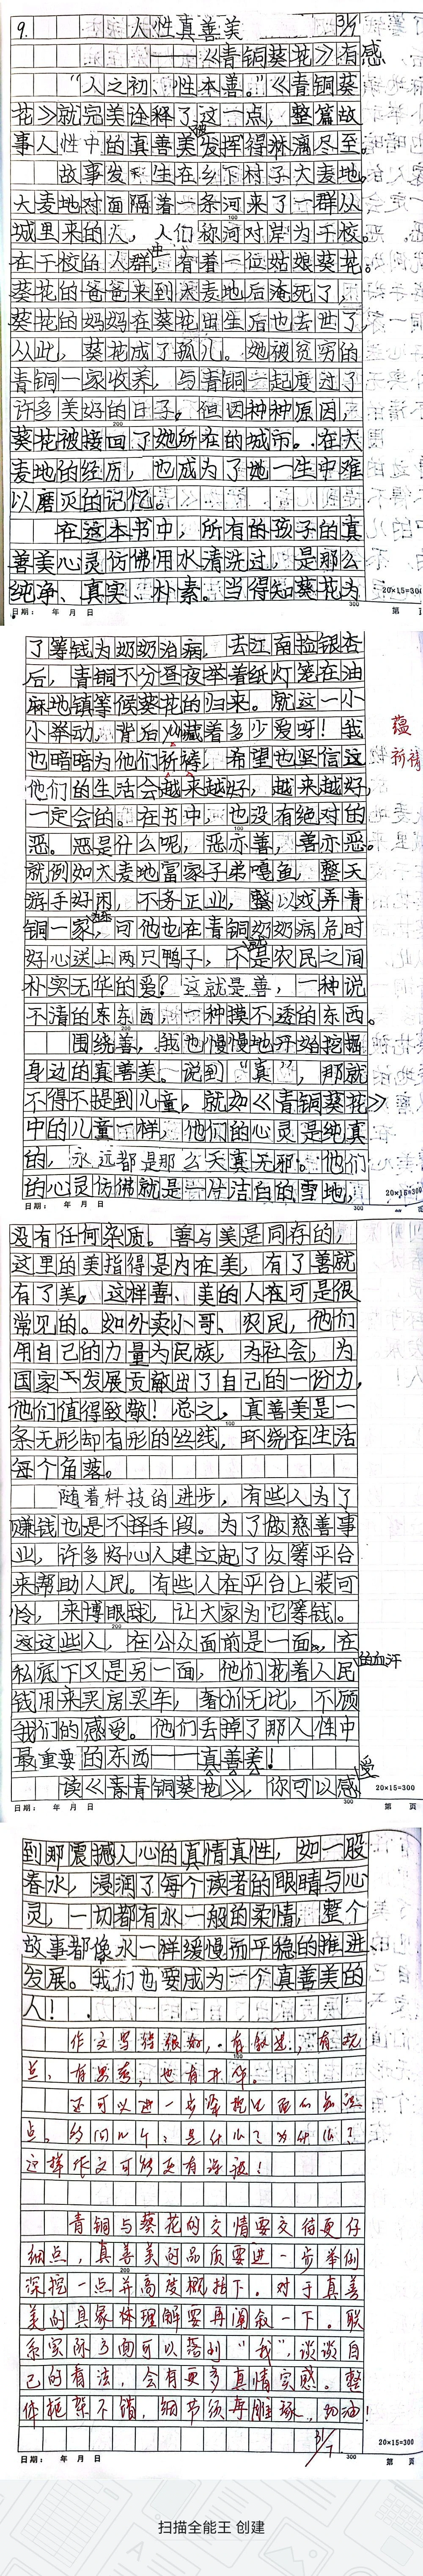 9. 人性真善美 31/7
——《青铜葵花》有感
“人之初、性本善。”《青铜葵
花》就完美诠释了这一点，整篇故
事人性中的真善美被发挥得淋漓尽至。
故事发生在乡下村子大麦地。
大麦地对面隔着一条河来了一群从
城里来的人，人们称河对岸为干校。
在干校的人群中，有着一位姑娘葵花。
葵花的爸爸来到大麦地后淹死了，
葵花的妈妈在葵花出生后也去世了，
从此，葵花成了孤儿。她被贫穷的
青铜一家收养，与青铜一起度过了
许多美好的日子。但因种种原因，
葵花被接回了她所在的城市。在大
麦地的经历，也成为了她一生中难
以磨灭的记忆。
在这本书中，所有的孩子的真
善美心灵仿佛用水清洗过，是那么
纯净、真实、朴素。当得知葵花为
20×15=300
日期： 年 月 日 300 第 页
了等钱为奶奶治病，去江南捡银杏
后，青铜不分昼夜举着纸灯笼在油
麻地镇等候葵花的归来。就这一小
小举动，背后yun藏着多少爱呀！我
蕴
也暗暗为他们祈祷，希望也坚信这
祈祷
他们的生活会越来越好，越来越好，
一定会的。在书中，也没有绝对的
恶。恶是什么呢，恶亦善，善亦恶。
就例如大麦地富家子弟嘎鱼，整天
游手好闲，不务正业，整以戏弄青
铜一家为乐，可他也在青铜奶奶病危时
好心送上两只鸭子，这不是农民之间
朴实无华的爱？这就是善，一种说
不清的东东西，一种摸不透的东西。
围绕善，我也慢慢地开始挖掘
身边的真善美。说到“真”，那就
不得不提到儿童。就如《青铜葵花》
中的儿童一样，他们的心灵是纯真
的，永远都是那么天真无邪。他们
的心灵仿佛就是一片洁白的雪地，
20×15=300
日期： 年 月 日 300
没有任何杂质。善与美是同存的，
这里的美指得是内在美，有了善就
有了美。这样善、美的人在可是很
常见的。如外卖小哥、农民，他们
用自己的力量为民族，为社会，为
国家发展贡献出了自己的一份力，
他们值得致敬！总之，真善美是一
条无形却有形的丝线，环绕在生活
每个角落。
随着科技的进步，有些人为了
赚钱也是不择手段。为了做慈善事
业，许多好心人建立起了众筹平台
来帮助人民。有些人在平台上装可
怜，来博眼球，让大家为它筹钱。
这些人，在公众面前是一面，在
私底下又是另一面，他们花着人民的血汗
钱用来买房买车，奢chǐ无比，不顾
我们的感受。他们丢掉了那人性中
最重要的东西——真善美！
读《青青铜葵花》，你可以感受
20×15=300
日期： 年 月 日 300 第 页
到那震撼人心的真情真性，如一股
春水，浸润了每个读者的眼睛与心
灵，一切都有水一般的柔情，整个
故事都像水一样缓慢而平稳的推进、
发展。我们也要成为一个真善美的
人！
作文写得很好，有叙述，有观
点，有思考，也有升华。
还可以进一步深挖里面的知识
点。多问几个：是什么？为什么？
这样作文可能更有深度！
青铜与葵花的交情要交待更仔
细点，真善美的品质要进一步举例
深挖一点并高度概括下。对于真善
美的具象体理解要再阐叙一下。联
系实际方面可以搭到“我”，谈谈自
己的看法，会有更多真情实感。整
体框架不错，细节须再雕琢，加油！
31/7
20×15=300
日期： 年 月 日 300 第 页
扫描全能王 创建